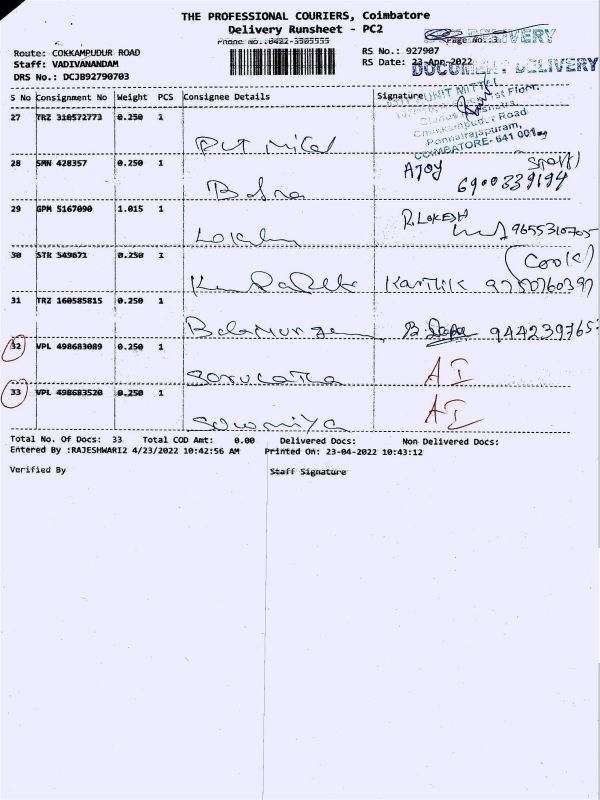 THE PROFESSIONAL COURIERS, Coimbatore
Delivery Runsheet - PC2
Phone No.:0422-3505555
Page No.:3
DELIVERY
Route: COKKAMPUDUR ROAD
RS No.: 927907
Staff: VADIVANANDAM
RS Date: 23-Apr-2022
DOCUMENT DELIVERY
DRS No.: DCJB92790703
S No Consignment No Weight PCS Consignee Details Signature
27 TRZ 310572773 0.250 1
Ponnairajapuram,
COIMBATORE- 641 001
28 SMN 428357 0.250 1 AJOY
6900339194
29 GPM 5167090 1.015 1 R.LOKESH
9655310705
30 STR 549671 0.250 1 (Cook)
Karthik 9750760397
31 TRZ 160585815 0.250 1
Balamurugan 944239765
32 VPL 498683089 0.250 1 AI
33 VPL 498683520 0.250 1 AI
Sowmiya
Total No. Of Docs: 33 Total COD Amt: 0.00 Delivered Docs: Non Delivered Docs:
Entered By :RAJESHWARI2 4/23/2022 10:42:56 AM Printed On: 23-04-2022 10:43:12
Verified By Staff Signature